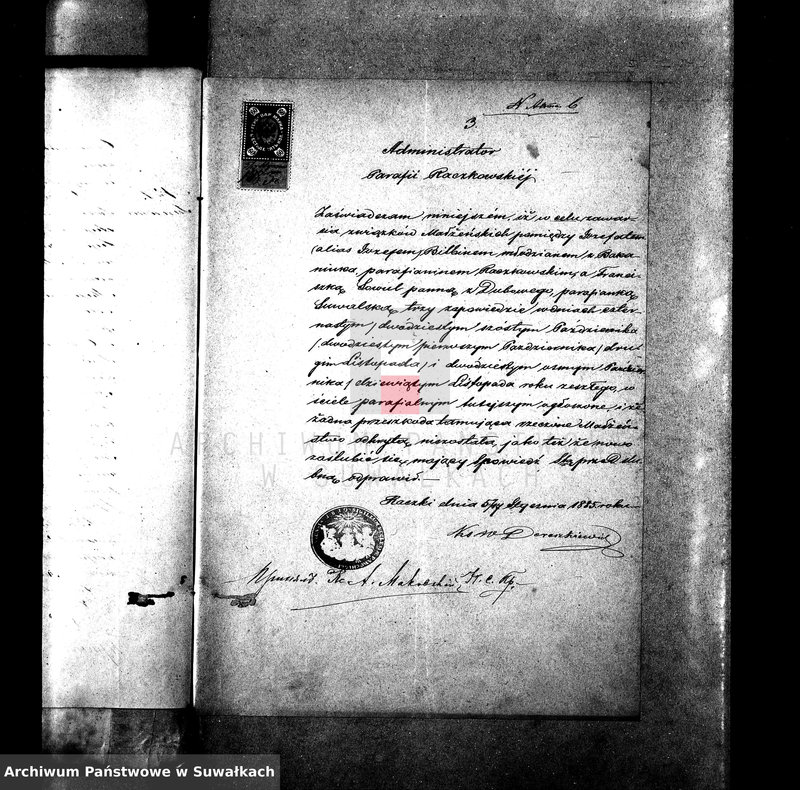 N Aktu 6
3.
Administrator
Parafii Raczkowskiéj
Zaświadczam niniejszém, iż w celu zawar-
cia związków Małżeńskich pomiędzy Jozefatem
/alias Jozefem/ Bilbinem młodzianem z Baka-
niuka, parafianinem Raczkowskim, a Franci-
szką panną z Dubowego, parafianką
Suwalską, trzy zapowiedzie w dniach czter-
nastym/dwódziestym szóstym Października
/dwódziestym pierwszym Października/ dru-
gim Listopada/ i dwódziestym osmym Paździer-
nika/dziewiątym Listopada roku zeszłego, w
ściele parafialnym tutejszym ogłoszone, i że
żadna przeszkoda tamująca rzeczone Małżeń-
stwo odkrytą niezostała, jako też że nowo
zaślubić się mający Spowiedź Ś. przed ślu-
bną odprawił.—
Raczki dnia 5/17 Stycznia 1885 roku
Ks W
X. A. Makowski
ARCHIWUM PAŃSTWOWE
W SUWAŁKACH
Archiwum Państwowe w Suwałkach